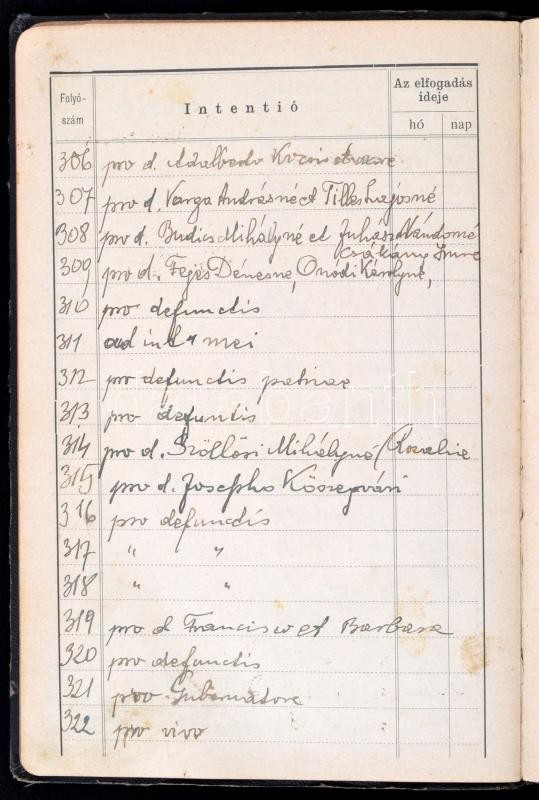 Folyó-
szám
Intentió
Az elfogadás
ideje
hó nap
306 pro d. Adalberto
307 pro d. Varga Andrásné et Tilles Lajosné
308 pro d. Budics Mihályné et Juhász Nándorné
Csákány Imre
309 pro d. Fejes Dénesné, Onódi Károlyné,
310 pro defunctis
311 ad int. mei
312 pro defunctis patriae
313 pro defuntis
314 pro d. Szöllősi Mihályné (Rozalie
315 pro d. Josepho Kőszegvári
316 pro defunctis
317 " "
318 " "
319 pro d Francisco et Barbara
320 pro defunctis
321 pro Gubernatore
322 pro vivo
darabanth